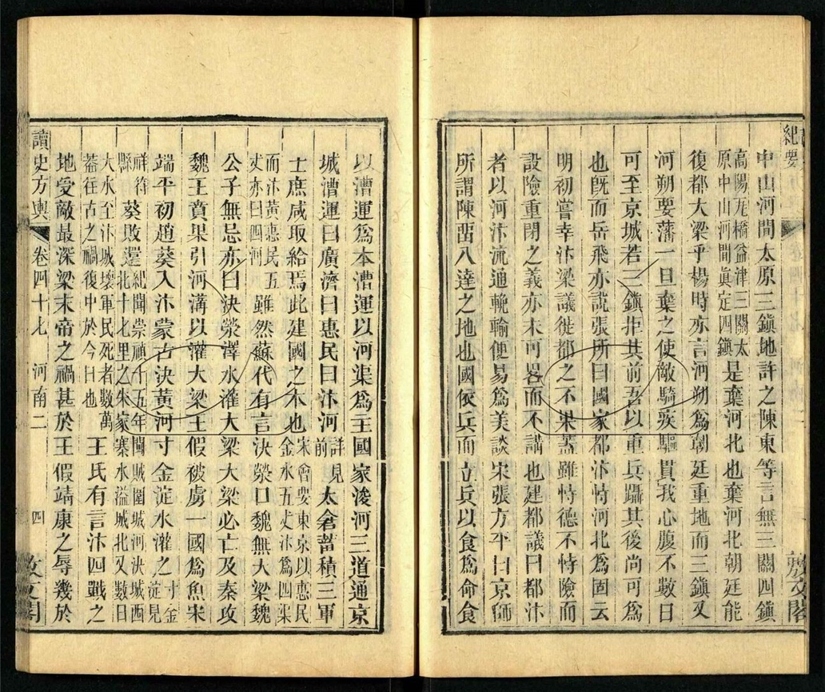 紀要
敷文閣
中山河間太原三鎮地許之陳東等言無三關四鎮
高陽瓦橋益津三關太
原中山河間真定四鎮
是棄河北也棄河北朝廷能
復都大梁乎楊時亦言河朔為朝廷重地而三鎮又
河朔要藩一旦棄之使敵騎疾驅貫我心腹不數日
可至京城若三鎮拒其前吾以重兵躡其後尚可為
也既而岳飛亦說張所曰國家都汴恃河北為固云
明初嘗幸汴梁議徙都之不果蓋雖恃德不恃險而
設險重閉之義亦未可畧而不講也建都議曰都汴
者以河汴流通輓輸便易為美談宋張方平曰京師
所謂陳畱八達之地也國依兵而立兵以食為命食
以漕運為本漕運以河渠為主國家浚河三道通京
城漕運曰廣濟曰惠民曰汴河
詳見
前
太倉蓄積三軍
士庶咸取給焉此建國之本也
宋會要東京以惠民
金水五丈汴為四渠
而汴黃惠民五
丈亦曰四河
雖然蘇代有言決滎口魏無大梁魏
公子無忌亦曰決滎澤水灌大梁大梁必亡及秦攻
魏王賁果引河溝以灌大梁王假被虜一國為魚宋
端平初趙葵入汴蒙古決黃河寸金淀水灌之
寸金
淀見
祥符
縣
葵敗還
紀聞崇禎十五年闖賊圍城河決城西
北十七里之朱家寨水溢城北又數日
大水至汴城壞軍民死者數萬
蓋往古之禍復中於今日也
王氏有言汴四戰之
地受敵最深梁末帝之禍甚於王假靖康之辱幾於
讀史方輿
卷四十七
河南二
四
敷文閣